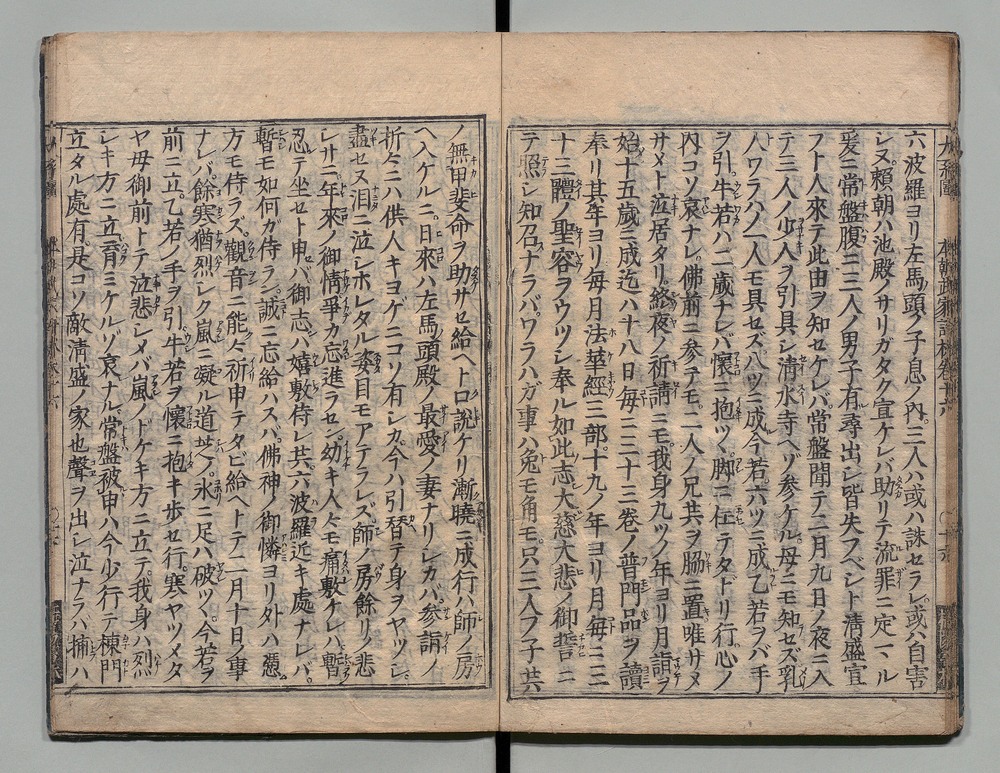 六波羅ヨリ左馬頭ノ子息ノ内三人ハ或ハ誅セラレ或ハ自害
シヌ頼朝ハ池殿ノサリガタク宣ケレバ助リテ流罪ニ定マル
爰ニ常盤腹ニ三人ノ男子有尋出シ皆失フベシト清盛宣
フト人來テ此由ヲ知セケレバ常盤聞テ二月九日ノ夜ニ入
テ三人ノ少人ヲ引具シ清水寺ヘゾ参ケル母ニモ知セズ乳
人ワラハノ一人モ具セズ八ツニ成今若六ツニ成乙若ヲバ手
ヲ引牛若ハ二歳ナレバ懷ニ抱ツヽ脚ニ任テタドリ行心ノ
内コソ哀ナレ佛前ニ参テモ二人ノ兄共ヲ脇ニ置唯サメ
サメト泣居タリ終夜ノ祈請ニモ我身九ツノ年ヨリ月詣ヲ
始十五歳ニ成迄ハ十八日毎ニ三十三卷ノ普門品ヲ讀
奉リ其年ヨリ毎月法華經三部十九ノ年ヨリ月毎ニ三
十三體ノ聖容ヲウツシ奉ル如此志大慈大悲ノ御誓ニ
テ照シ知召ナラバワラハガ事ハ兔モ角モ只三人ノ子共
ノ無甲斐命ヲ助サセ給ヘト口説ケリ漸曉ニ成行ハ師ノ房
ヘ入ケルニ日來ハ左馬頭殿ノ最愛ノ妻ナリシカバ参詣ノ
折々ニハ供人キヨゲニコソ有シカ今ハ引替テ身ヲヤツシ
盡セヌ泪ニ泣シホレタル姿目モアテラレズ師ノ房餘リノ悲
シサニ年來ノ御情爭カ忘進ラセン幼キ人々モ痛敷ケレハ暫
忍テ坐セト申セバ御志ハ嬉敷侍レ共六波羅近キ處ナレバ
暫モ如何ガ侍ラン誠ニ忘給ハスバ佛神ノ御憐ヨリ外ハ憑
方モ侍ラズ觀音ニ能々祈申テタビ給ヘトテ二月十日ノ事
ナレバ餘寒猶烈シク嵐ニ凝ル道芝ノ氷ニ足ハ破ツヽ今若ヲ
前ニ立乙若ノ手ヲ引牛若ヲ懷ニ抱キ歩セ行寒ヤツメタ
ヤ母御前トテ泣悲シメバ嵐ノドケキ方ニ立テ我身ハ烈
シキ方ニ立育ミケルゾ哀ナル常盤被申ハ今少行テ棟門
立タル處有是コソ敵清盛ノ家也聲ヲ出シ泣ナラハ捕ハ